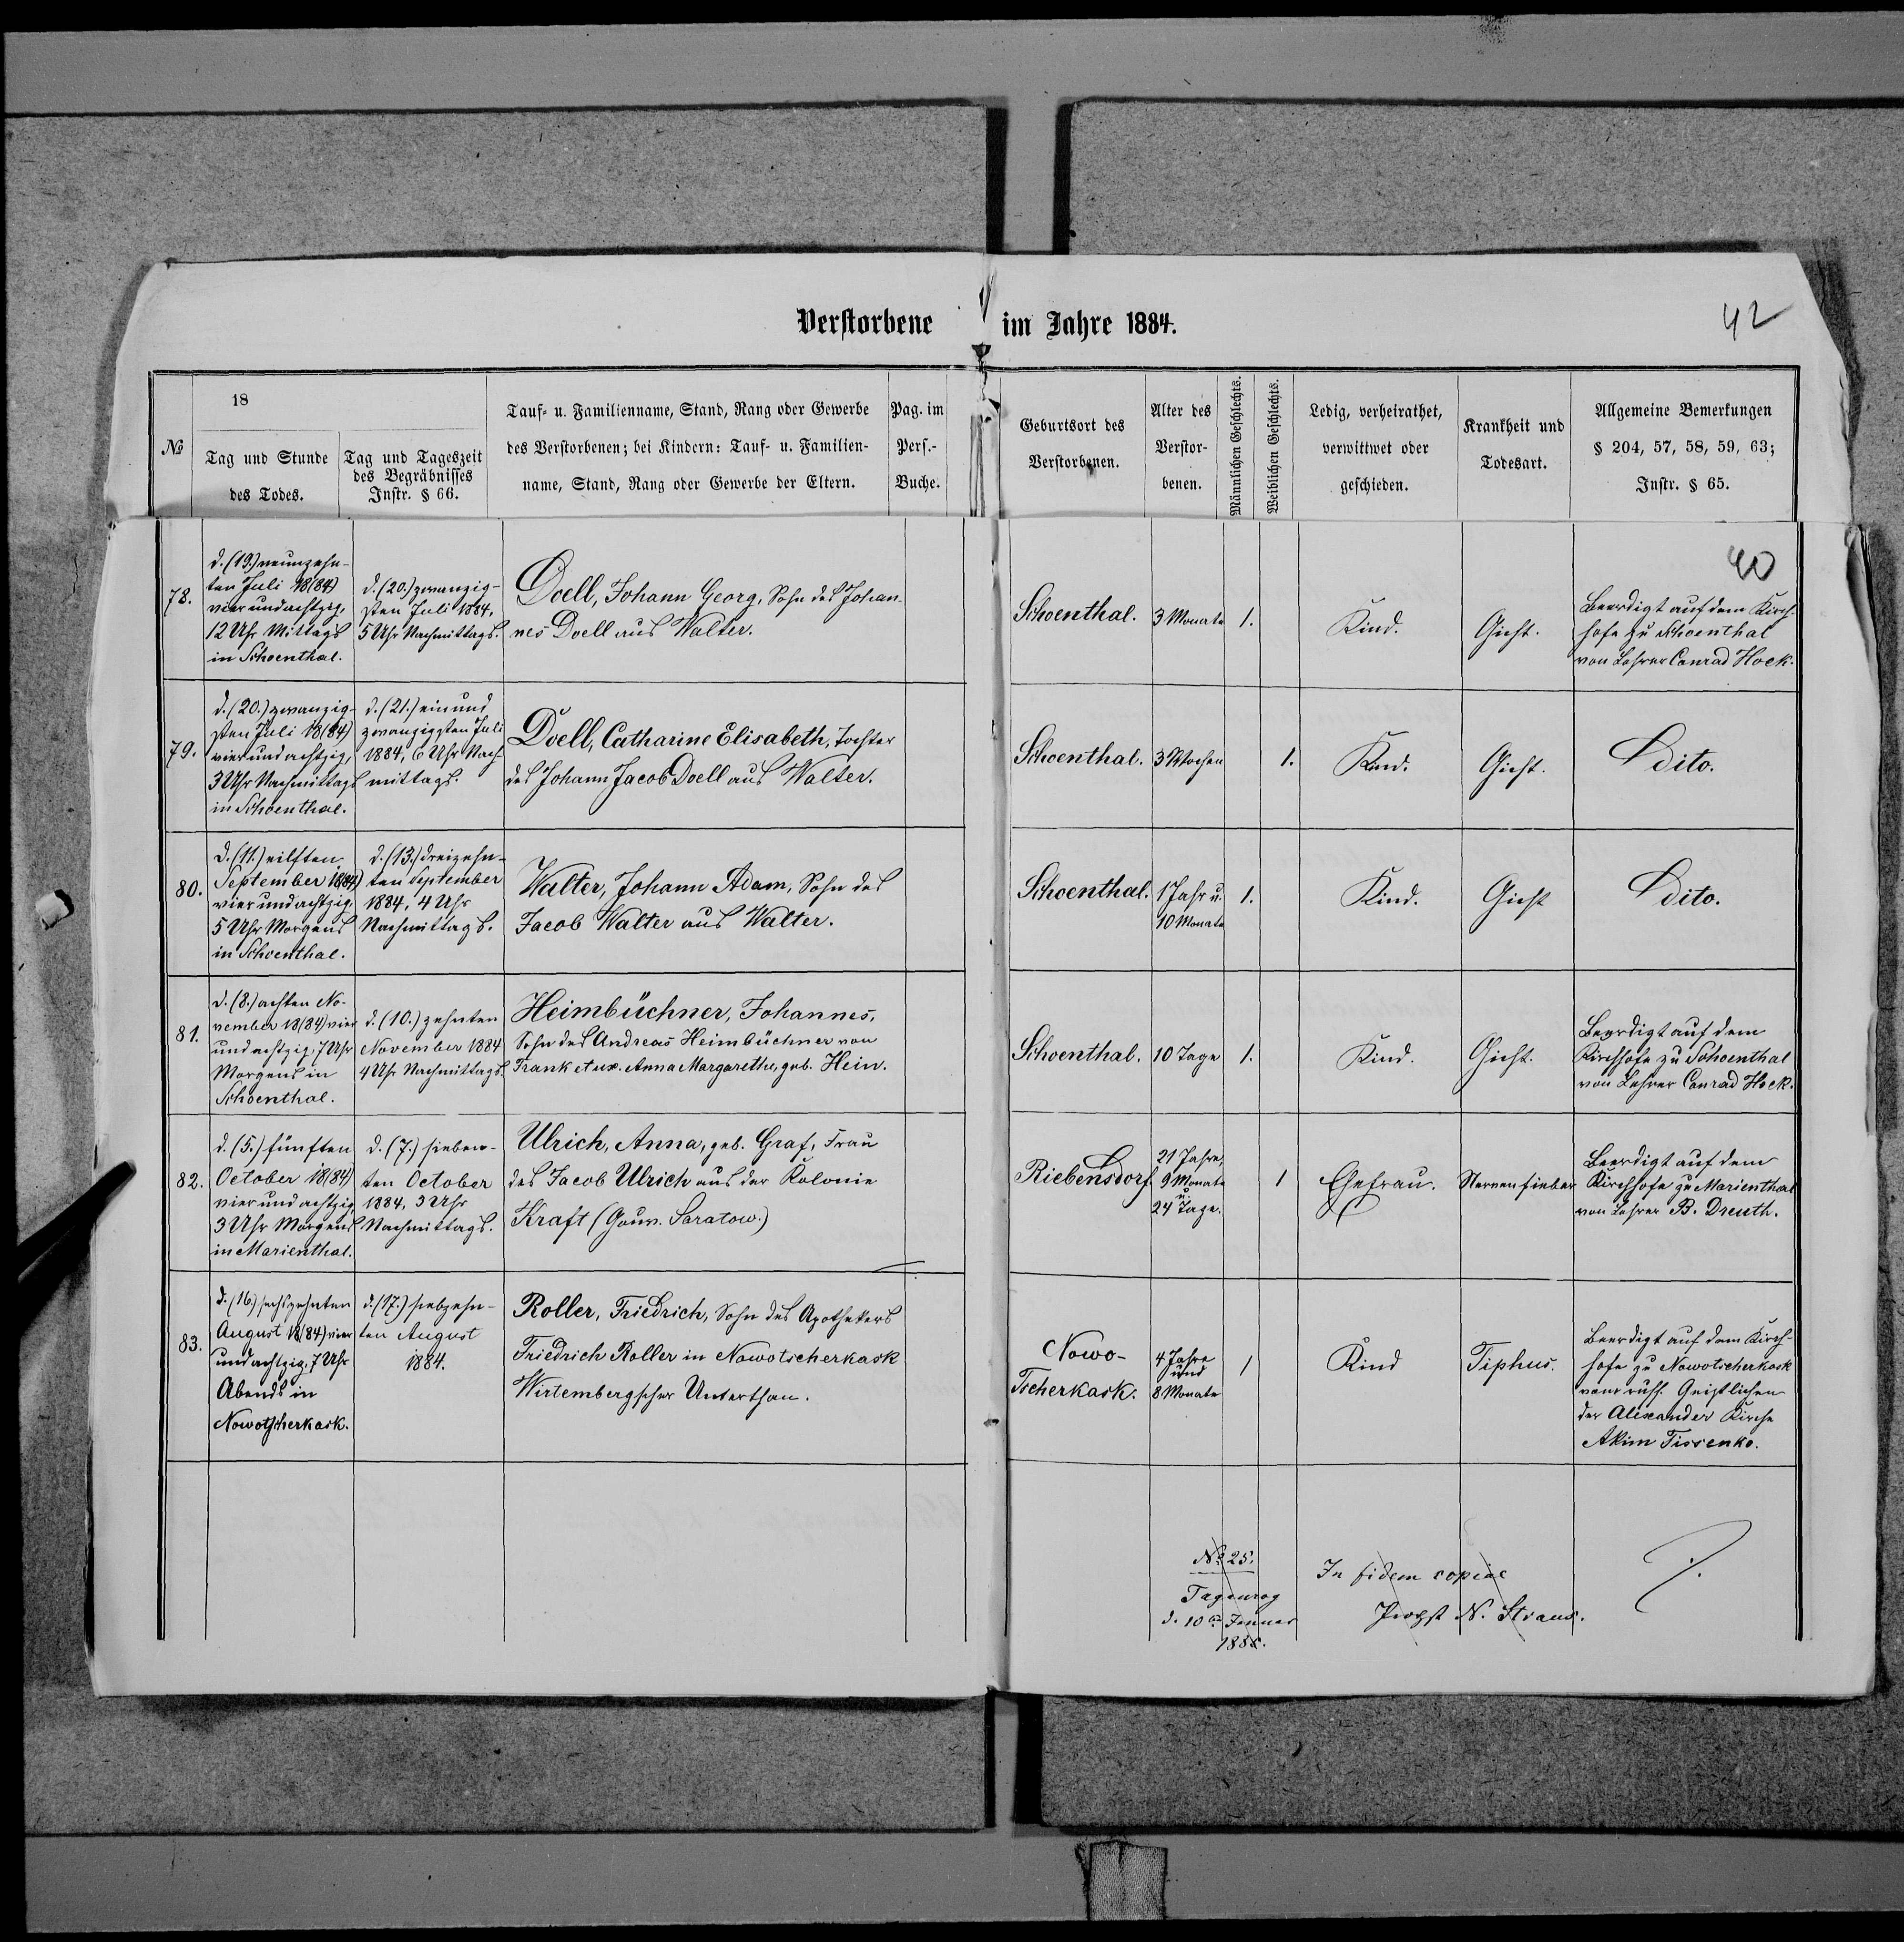 Verstorbene im Jahre 1884.
42
№
18
Tag und Stunde
des Todes.
Tag und Tageszeit
des Begräbnisses
Instr. § 66.
Tauf- u. Familienname, Stand, Rang oder Gewerbe
des Verstorbenen; bei Kindern: Tauf- u. Familien-
name, Stand, Rang oder Gewerbe der Eltern.
Pag. im
Pers.-
Buche.
Geburtsort des
Verstorbenen.
Alter des
Verstor-
benen.
Männlichen Geschlechts.
Weiblichen Geschlechts.
Ledig, verheirathet,
verwittwet oder
geschieden.
Krankheit und
Todesart.
Allgemeine Bemerkungen
§ 204, 57, 58, 59, 63;
Instr. § 65.
40
78.
d. (19.) neunzehn-
ten Juli 18(84)
vier und achtzig,
12 Uhr Mittags
in Schoenthal.
d. (20.) zwanzig-
sten Juli 1884,
5 Uhr Nachmittags.
Doell, Johann Georg, Sohn des Johan-
nes Doell aus Walter.
Schoenthal.
3 Monate
1.
Kind.
Gicht.
Beerdigt auf dem Kirch-
hofe zu Schoenthal
von Lehrer Conrad Hock.
79.
d. (20.) zwanzig-
sten Juli 18(84)
vier und achtzig,
3 Uhr Nachmittags
in Schoenthal.
d. (21.) ein und
zwanzigsten Juli
1884, 6 Uhr Nach-
mittags.
Doell, Catharine Elisabeth, Tochter
des Johann Jacob Doell aus Walter.
Schoenthal.
3 Wochen
1.
Kind.
Gicht.
Dito.
80.
d. (11.) eilften
September 18(84)
vier und achtzig,
5 Uhr Morgens
in Schoenthal.
d. (13.) dreizehn-
ten September
1884, 4 Uhr
Nachmittags.
Walter, Johann Adam, Sohn des
Jacob Walter aus Walter.
Schoenthal.
1 Jahr u.
10 Monate
1.
Kind.
Gicht
Dito.
81.
d. (8.) achten No-
vember 18(84) vier
und achtzig, 7 Uhr
Morgens in
Schoenthal.
d. (10.) zehnten
November 1884
4 Uhr Nachmittags.
Heimbüchner, Johannes,
Sohn des Andreas Heimbüchner von
Frank et ux. Anna Margarethe, geb. Hein.
Schoenthal.
10 Tage
1.
Kind.
Gicht.
Beerdigt auf dem
Kirchhofe zu Schoenthal
von Lehrer Conrad Hock.
82.
d. (5.) fünften
October 18(84)
vier und achtzig
3 Uhr Morgens
in Marienthal.
d. (7.) sieben-
ten October
1884, 3 Uhr
Nachmittags.
Ulrich, Anna, geb. Graf, Frau
des Jacob Ulrich aus der Kolonie
Kraft (Gouv. Saratow.)
Riebensdorf
21 Jahre,
9 Monate
u.
24 Tage.
1
Ehefrau.
Nervenfieber
Beerdigt auf dem
Kirchhofe zu Marienthal
von Lehrer B. Dreuth.
83.
d. (16) sechszehnten
August 18(84) vier
und achtzig, 7 Uhr
Abends in
Nowotscherkask.
d. (17.) siebzehn-
ten August
1884.
Roller, Friedrich, Sohn des Apothekers
Friedrich Roller in Nowotscherkask
Wirtembergscher Unterthan.
Nowo-
Tscherkask.
4 Jahre
und
8 Monate
1
Kind
Tiphus.
Beerdigt auf dem Kirch-
hofe zu Nowotscherkask
vom russ. Geistlichen
der Alexander Kirche
Akim Tissenko.
№ 25.
Taganrog
d. 10 Januar
1885.
In fidem copiae
Probst N. Straus.